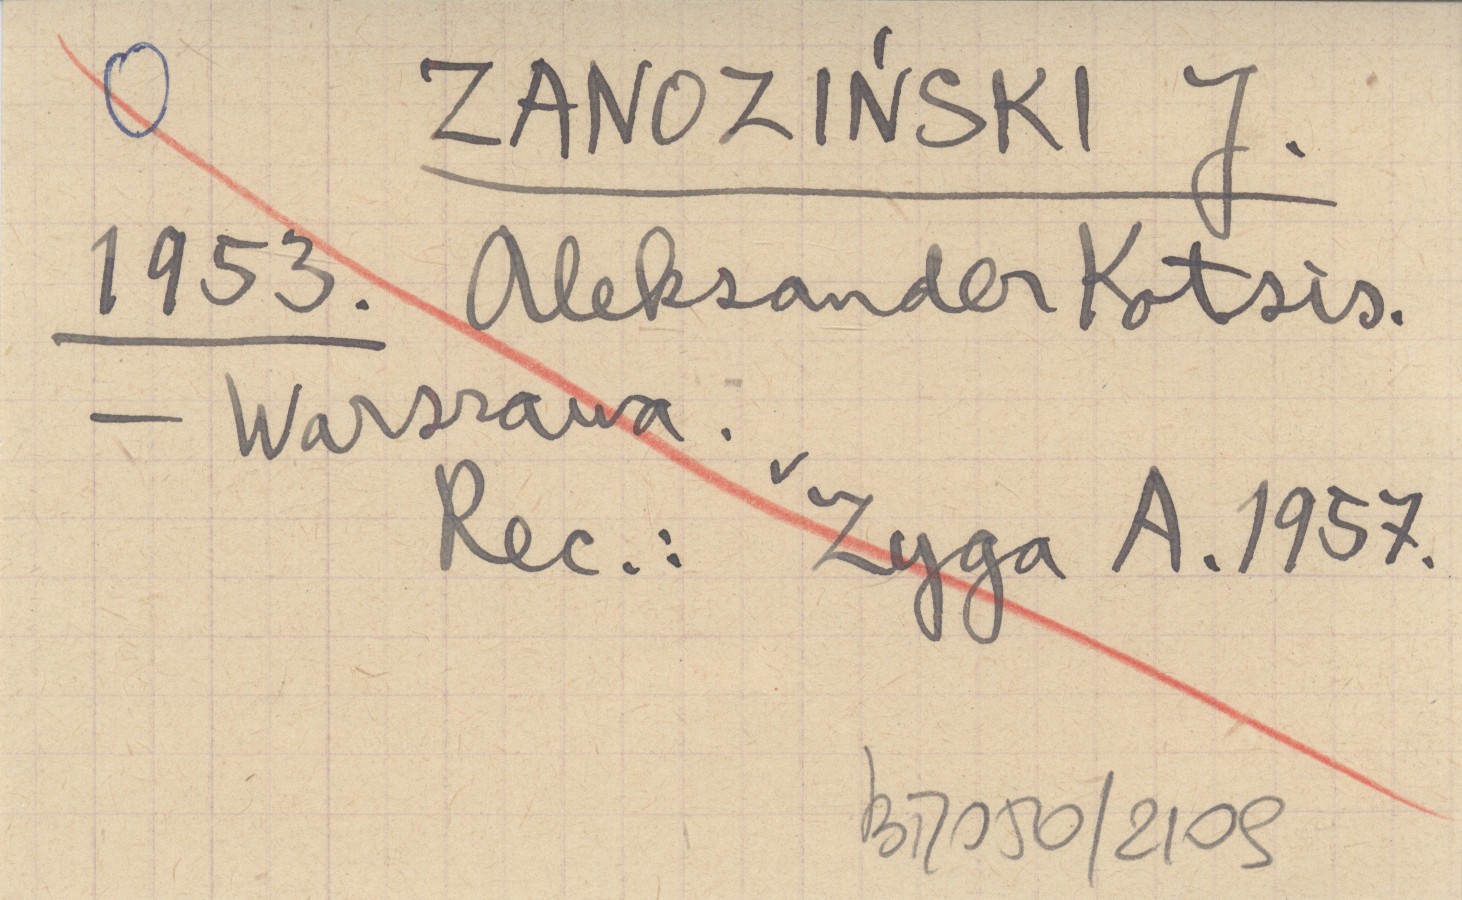 ZANOZIŃSKI J.
1953. Aleksander Kotsis.
— Warszawa.
Rec.: Zyga A. 1957.
/2109